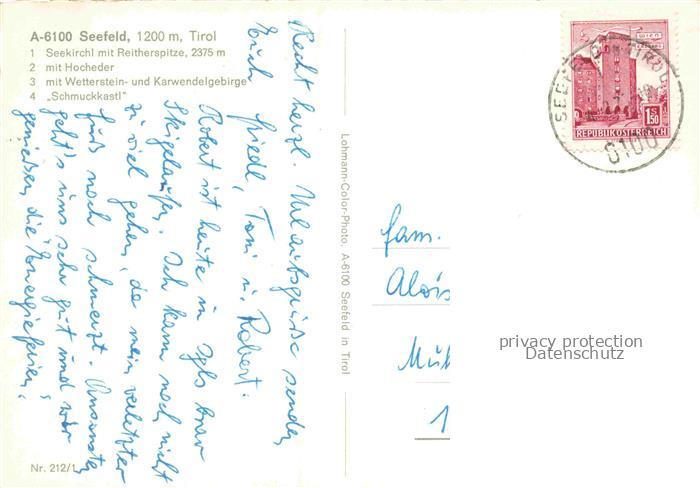 A-6100 Seefeld, 1200 m, Tirol
1 Seekirchl mit Reitherspitze, 2375 m
2 mit Hocheder
3 mit Wetterstein- und Karwendelgebirge
4 „Schmuckkastl"
Recht herzl. Urlaubsgrüße senden
Euch Friedl, Toni u. Robert.
Robert ist heute in Igls brav
Skigelaufen. Ich kann noch nicht
zu viel gehen, da mein verletzter
Fuß noch schmerzt. Ansonsten
geht's uns sehr gut und wir
genießen die Energieferien!
Nr. 212/1
Lohmann-Color-Photo. A-6100 Seefeld in Tirol
WIEN
S 1.50
REPUBLIK ÖSTERREICH
SEEFELD TIROL
6100
Fam.
Alois
Mü
1
privacy protection
Datenschutz